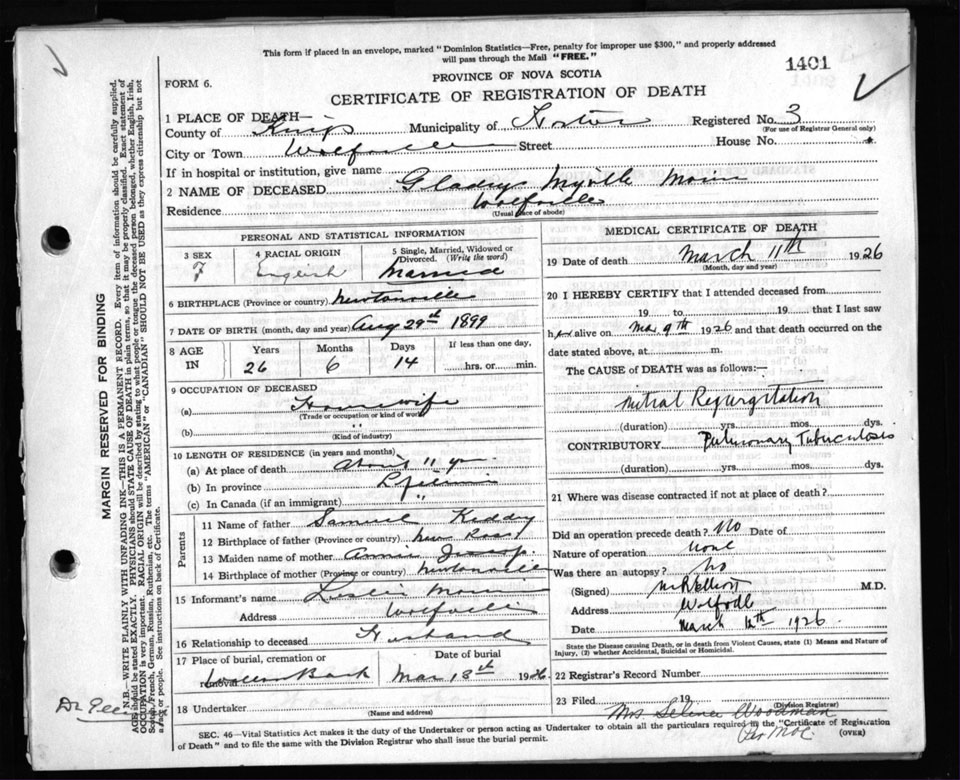 This form if placed in an envelope, marked "Dominion Statistics—Free, penalty for improper use $300," and properly addressed
will pass through the Mail "FREE."
1401
PROVINCE OF NOVA SCOTIA
FORM 6.
CERTIFICATE OF REGISTRATION OF DEATH
1 PLACE OF DEATH—
County of Kings Municipality of Registered No. 3
(For use of Registrar General only)
City or Town Wolfville Street House No.
If in hospital or institution, give name
2 NAME OF DECEASED Gladys Myrtle
Residence Wolfville
(Usual place of abode)
PERSONAL AND STATISTICAL INFORMATION
3 SEX F
4 RACIAL ORIGIN English
5 Single, Married, Widowed or Divorced. (Write the word) Married
6 BIRTHPLACE (Province or country) Newtonville
7 DATE OF BIRTH (month, day and year) Aug 29th 1899
8 AGE IN Years 26 Months 6 Days 14 If less than one day, hrs. or min.
9 OCCUPATION OF DECEASED
(a) Housewife
(Trade or occupation or kind of work)
(b) "
(Kind of industry)
10 LENGTH OF RESIDENCE (in years and months)
(a) At place of death about 11 yr
(b) In province Lifetime
(c) In Canada (if an immigrant) "
Parents
11 Name of father Samuel Keddy
12 Birthplace of father (Province or country) New Ross
13 Maiden name of mother Annie
14 Birthplace of mother (Province or country) Newtonville
15 Informant's name Leslie
Address Wolfville
16 Relationship to deceased Husband
17 Place of burial, cremation or removal Date of burial
Mar 13th 1926
18 Undertaker
(Name and address)
MEDICAL CERTIFICATE OF DEATH
19 Date of death March 11th 1926
(Month, day and year)
20 I HEREBY CERTIFY that I attended deceased from
19 to 19 that I last saw
her alive on Mar 9th 1926 and that death occurred on the
date stated above, at m.
The CAUSE of DEATH was as follows:—
Mitral Regurgitation
(duration) yrs. mos. dys.
CONTRIBUTORY Pulmonary Tuberculosis
(duration) yrs. mos. dys.
21 Where was disease contracted if not at place of death?
Did an operation precede death? No Date of
Nature of operation None
Was there an autopsy? No
(Signed) M R Elliott M.D.
Address Wolfville
Date March 1926
State the Disease causing Death, or in death from Violent Causes, state (1) Means and Nature of
Injury, (2) whether Accidental, Suicidal or Homicidal.
22 Registrar's Record Number
23 Filed 19
(Division Registrar)
Mrs Selena Woodman
SEC. 46—Vital Statistics Act makes it the duty of the Undertaker or person acting as Undertaker to obtain all the particulars required in the "Certificate of Registration
of Death" and to file the same with the Division Registrar who shall issue the burial permit.
(OVER)
MARGIN RESERVED FOR BINDING
N.B.—WRITE PLAINLY WITH UNFADING INK—THIS IS A PERMANENT RECORD. Every item of information should be carefully supplied.
AGE should be stated EXACTLY. PHYSICIANS should STATE CAUSE OF DEATH in plain terms, so that it may be properly classified. Exact statement of
OCCUPATION is very important. RACIAL ORIGIN will be described by stating to what people or tongue the deceased person belonged, whether English, Irish,
Scotch, French, German, Russian, Ruthenian, etc. The terms "AMERICAN" or "CANADIAN" SHOULD NOT BE USED as they express citizenship but not
a race or people. See instructions on back of Certificate.